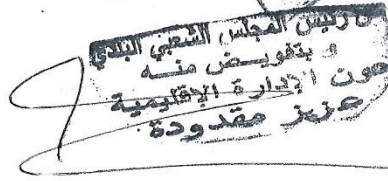 رئيس المجلس الشعبي البلدي
و بتفويض منه
عون الإدارة الإقليمية
عزيز مقدودة